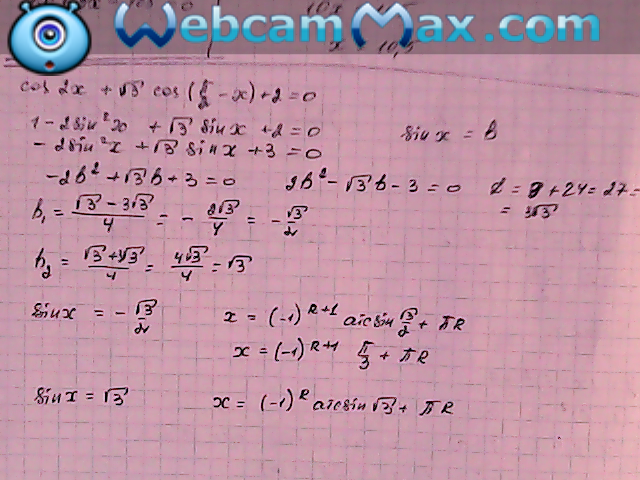 WebcamMax.com
10,5
cos 2x + √3 cos(π/2 - x) + 2 = 0
1 - 2sin²x + √3 sinx + 2 = 0
sinx = b
- 2sin²x + √3 sinx + 3 = 0
-2b² + √3 b + 3 = 0
2b² - √3 b - 3 = 0
+ 24 = 27 =
= 3√3
b₁ = (√3 - 3√3)/4 = - 2√3/4 = - √3/2
b₂ = (√3 + 3√3)/4 = 4√3/4 = √3
sinx = - √3/2
x = (-1)^(k+1) arcsin √3/2 + πk
x = (-1)^(k+1) π/3 + πk
sinx = √3
x = (-1)^k arcsin √3 + πk